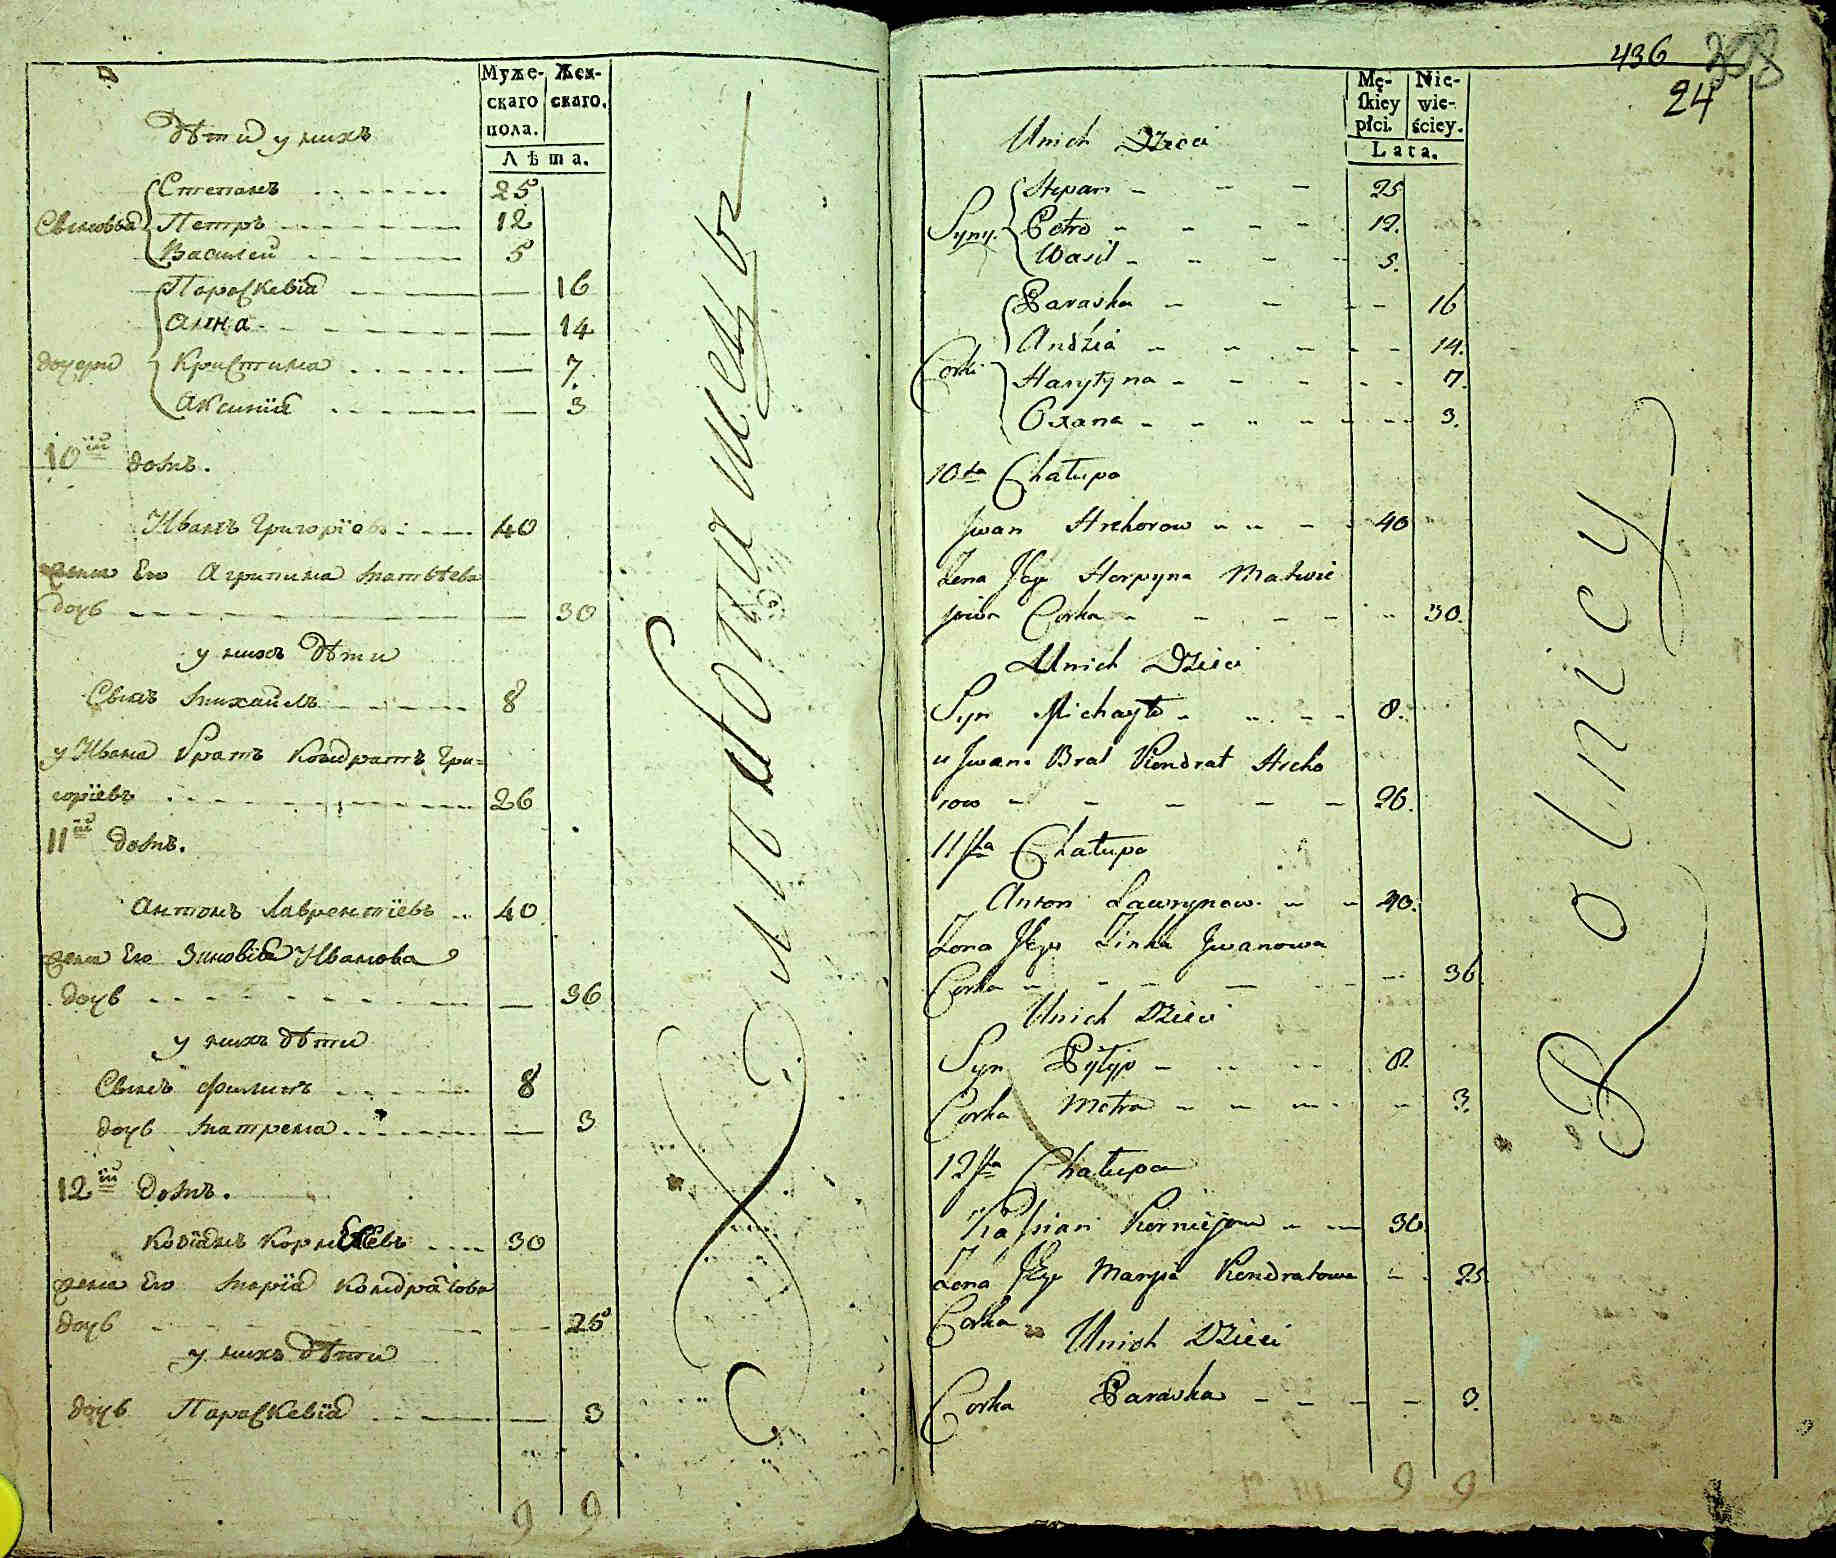 Муже-
скаго
пола.
Жен-
скаго.
Лѣта.
дѣти у нихъ
Сыновья
Степанъ 25
Петръ 12
Василей 5
дочери
Параскевїа — 16
Анна — 14
Кристина — 7
Аксинїа — 3
10ій домъ.
Иванъ Григорїевъ 40
жена Его Агрипина Матвѣева
дочь — 30
у нихъ дѣти
Сынъ Михаилъ 8
у Ивана братъ Кондратъ Гри=
горїевъ 26
11ій домъ.
Антонъ Лаврентїевъ 40
жена Его Зиновїа Иванова
дочь — 36
у нихъ дѣти
Сынъ Филипъ 8
дочь Матрена — 3
12ій домъ.
Косїанъ Корнѣевъ 30
жена Его Марїа Кондратова
дочь — 25
у нихъ дѣти
дочь Параскевїа — 3
9 9
Хлѣбопашецъ
436
24
Mę-
ſkiey
płci.
Nie-
wie-
ściey.
Lata.
Unich Dzieci
Syny
Stepan 25
Petro 12.
Wasil 5.
Corki
Paraska 16
Andzia 14.
Harytyna 7.
Oxana 3.
10ta Chałupa
Jwan Hrehorow 40
Zona Jego Horpyna Matwie
jowa Corka 30.
Unich Dzieci
Syn Michayło 8.
u Jwana Brat Kondrat Hreho
row 26.
11sta Chałupa
Anton Lawrynow 40.
Zona Jego Zinka Jwanowa
Corka 36
Unich Dzieci
Syn Pylyp 8.
Corka Motra 3.
12sta Chałupa
Kassian Korniejow 30
Zona Jego Marya Kondratowa 25
Corka
Unich Dzieci
Corka Paraska 3.
9 9
Rolnicy